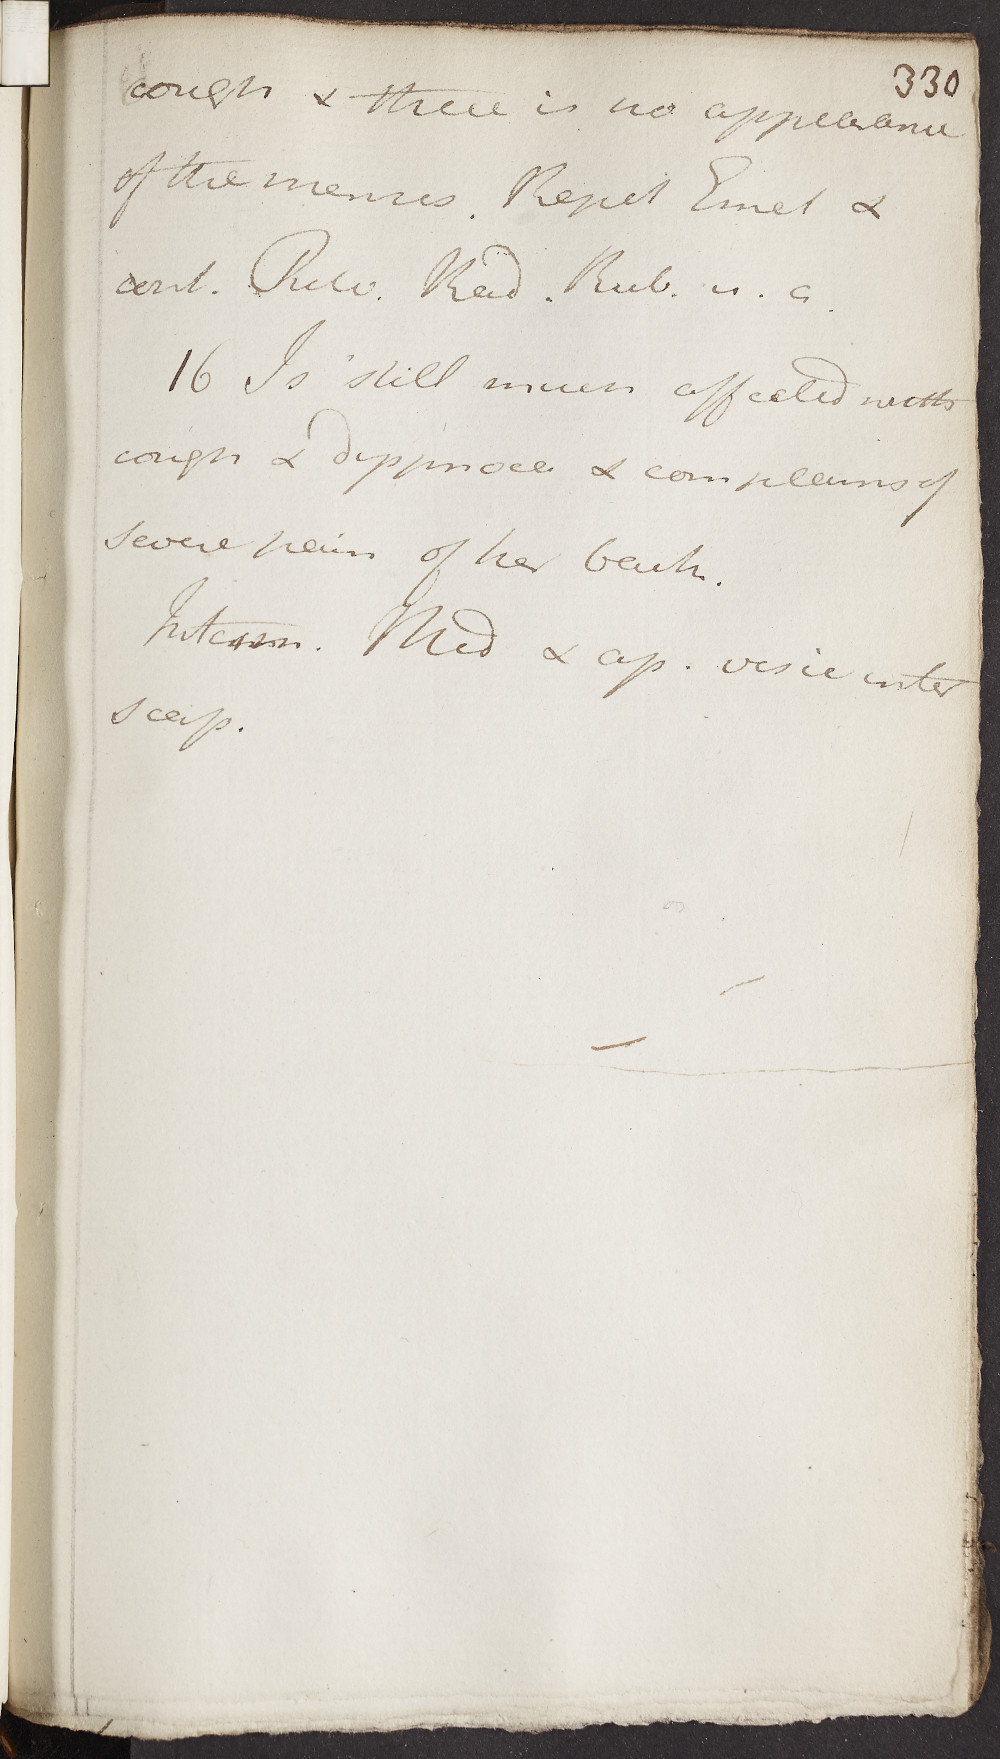 330
cough & there is no appearance
of the menses. Repet Emet &
cont. Pulv. Rad. Rub. u. a.
16 Is still much affected with
cough & dyspnoea & complains of
severe pain of her back.
Interm. Med & ap. vesic inter
scap.